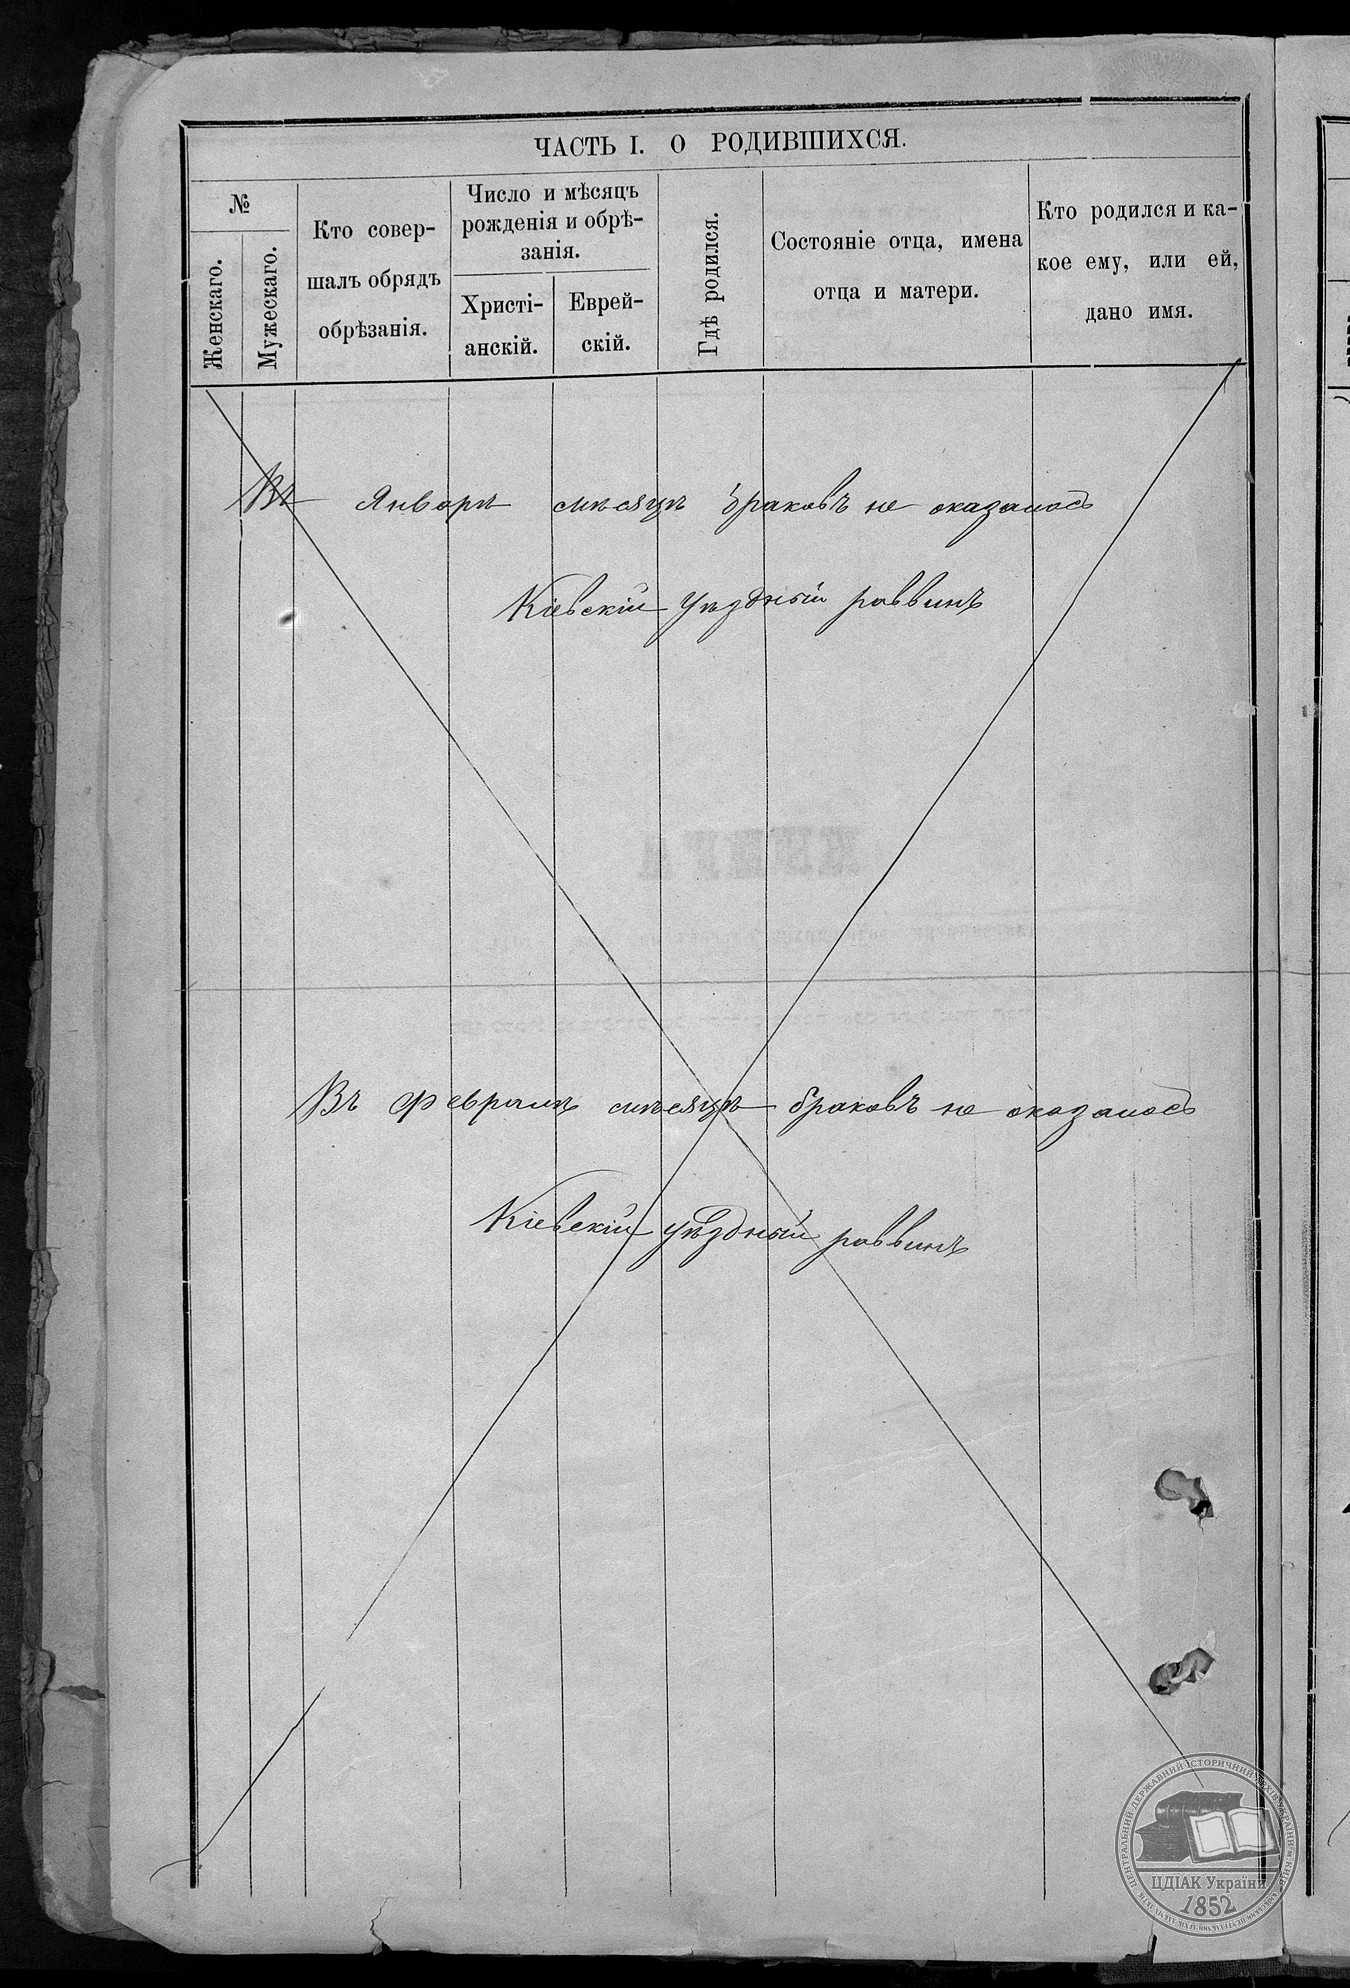 ЧАСТЬ I. О РОДИВШИХСЯ.
№
Женскаго.
Мужескаго.
Кто совер-
шалъ обрядъ
обрѣзанія.
Число и мѣсяцъ
рожденія и обрѣ-
занія.
Христі-
анскій.
Еврей-
скій.
Гдѣ родился.
Состояніе отца, имена
отца и матери.
Кто родился и ка-
кое ему, или ей,
дано имя.
Въ Январѣ мѣсяцѣ браковъ не оказалось
Кіевскій уѣздный раввинъ
КНИГА
Въ Февралѣ мѣсяцѣ браковъ не оказалось
Кіевскій уѣздный раввинъ
ЦЕНТРАЛЬНИЙ ДЕРЖАВНИЙ ІСТОРИЧНИЙ АРХІВ УКРАЇНИ М. КИЇВ
ЦДІАК України
1852